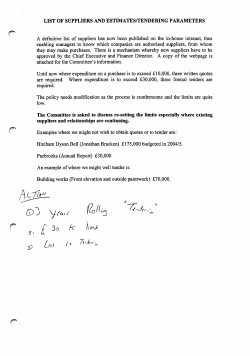 LIST OF SUPPLIERS AND ESTIMATES/TENDERING PARAMETERS
A definitive list of suppliers has now been published on the in-house internet, thus
enabling managers to know which companies are authorised suppliers, from whom
they may make purchases. There is a mechanism whereby new suppliers have to be
approved by the Chief Executive and Finance Director. A copy of the webpage is
attached for the Committee's information.
Until now where expenditure on a purchase is to exceed £10,000, three written quotes
are required. Where expenditure is to exceed £30,000, three formal tenders are
required.
The policy needs modification as the process is cumbersome and the limits are quite
low.
The Committee is asked to discuss re-setting the limits especially where existing
suppliers and relationships are continuing.
Examples where we might not wish to obtain quotes or to tender are:
Bircham Dyson Bell (Jonathan Bracken) £175,000 budgeted in 2004/5.
Purbrooks (Annual Report) £30,000
An example of where we might well tender is:
Building works (Front elevation and outside paintwork) £70,000.
ACTION
3 years Rolling "Tendering"
£30 K limit
List